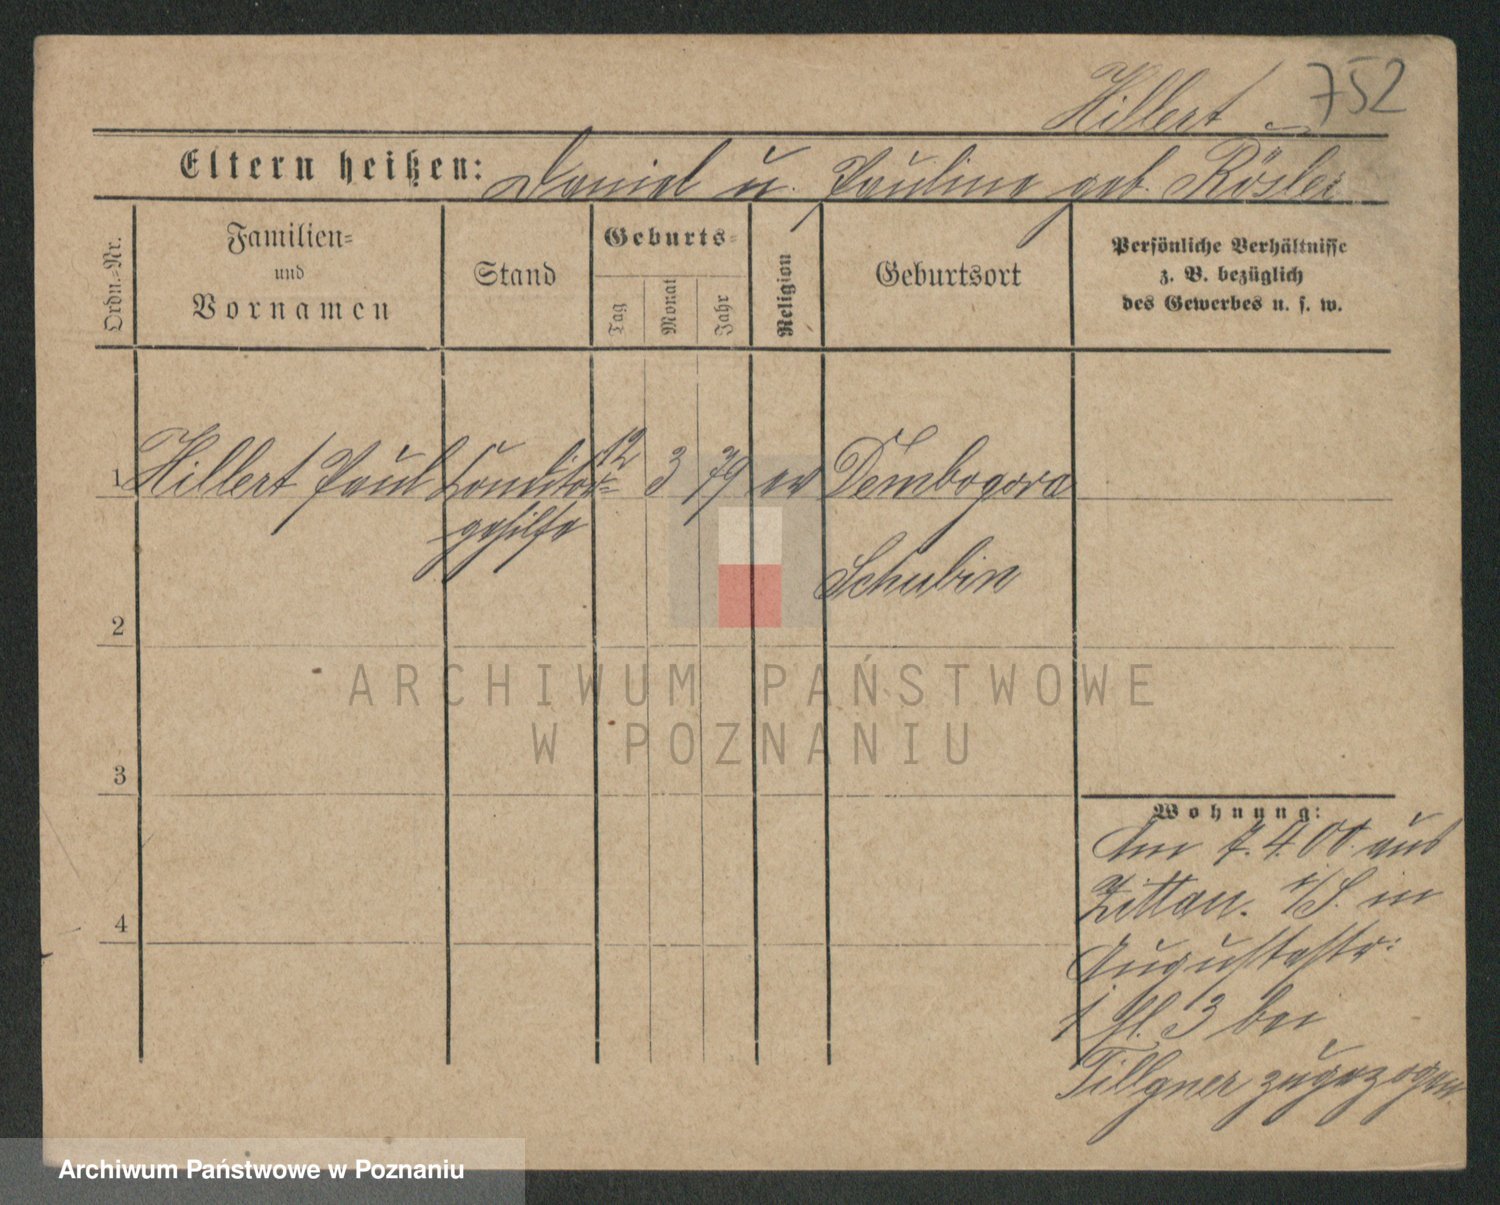 752
Hillert
Eltern heißen: Daniel u. Pauline geb. Rösler
Ordn.-Nr.
Familien-
und
Vornamen
Stand
Geburts-
Tag
Monat
Jahr
Religion
Geburtsort
Persönliche Verhältnisse
z. B. bezüglich
des Gewerbes u. s. w.
1 Hillert Paul Conditor- 12 3 79 ev Dembogora
gehilfe
Schubin
2
3
4
Wohnung:
Am 7.4.00. aus
Zittau. i/S. in
Augustastr:
1 Hl. 3 bei
Tillgner zugezogen
ARCHIWUM PAŃSTWOWE
W POZNANIU
Archiwum Państwowe w Poznaniu